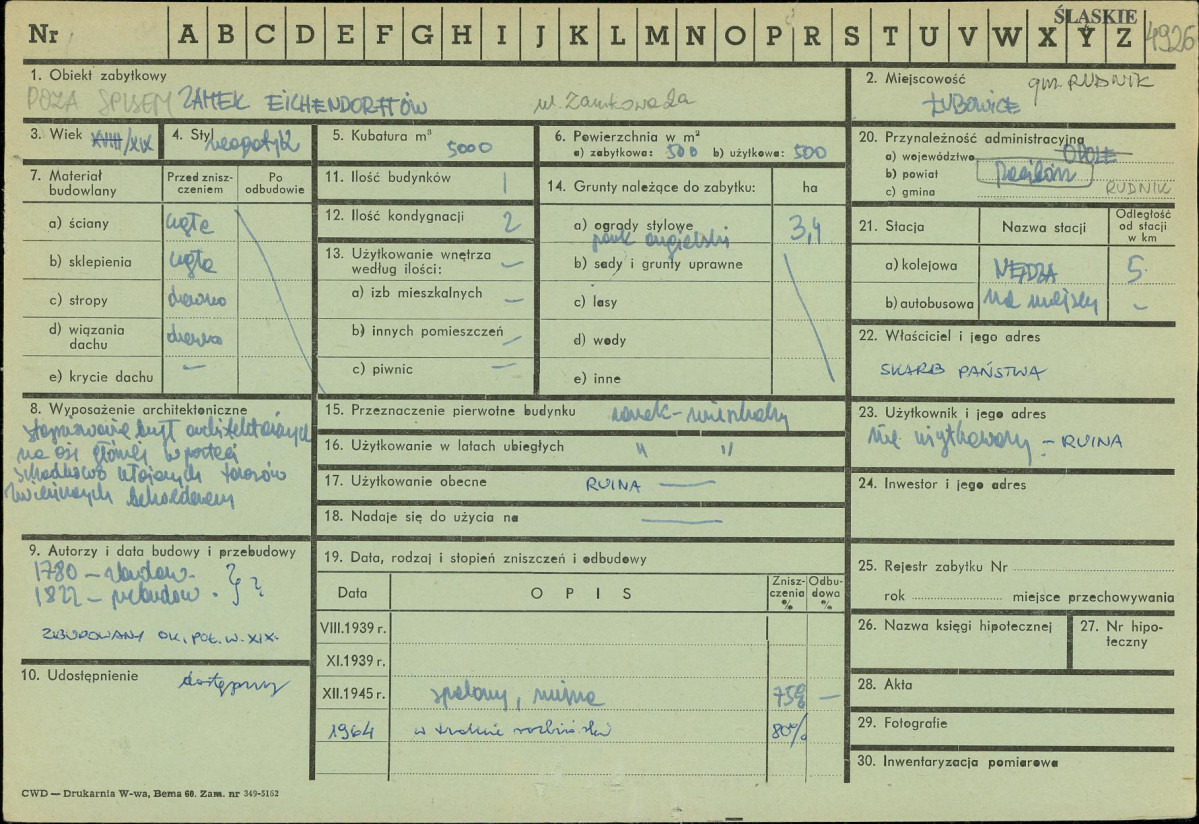 Nr A B C D E F G H I J K L M N O P R S T U V W X Y Z
ŚLĄSKIE
4926
1. Obiekt zabytkowy
POZA SPISEM ZAMEK EICHENDORFFÓW ul. Zamkowa 2a
2. Miejscowość gm. RUDNIK
ŁUBOWICE
3. Wiek XVIII/XIX
4. Styl neogotyk
5. Kubatura m³
5000
6. Powierzchnia w m²
a) zabytkowa: 500 b) użytkowa: 500
7. Materiał budowlany
Przed znisz-
czeniem
Po
odbudowie
a) ściany cegła
b) sklepienia cegła
c) stropy drewno
d) wiązania
dachu drewno
e) krycie dachu —
8. Wyposażenie architektoniczne
na osi głównej w postaci
schodkowo
9. Autorzy i data budowy i przebudowy
1780 — zbudow.
1822 — przebudow. } ?
ZBUDOWANY OK. POŁ. W. XIX.
10. Udostępnienie dostępny
11. Ilość budynków 1
12. Ilość kondygnacji 2
13. Użytkowanie wnętrza
według ilości: —
a) izb mieszkalnych —
b) innych pomieszczeń —
c) piwnic —
14. Grunty należące do zabytku: ha
a) ogrody stylowe
park angielski 3,4
b) sady i grunty uprawne
c) lasy
d) wody
e) inne
15. Przeznaczenie pierwotne budynku zamek - mieszkalny
16. Użytkowanie w latach ubiegłych " "
17. Użytkowanie obecne RUINA —
18. Nadaje się do użycia na —
19. Data, rodzaj i stopień zniszczeń i odbudowy
Data OPIS Znisz-
czenia
% Odbu-
dowa
%
VIII.1939 r.
XI.1939 r.
XII.1945 r. spalony, ruina 75% —
1964 w trakcie rozbiórki 80%
20. Przynależność administracyjna
a) województwo OPOLE
b) powiat Racibórz
c) gmina RUDNIK
21. Stacja Nazwa stacji Odległość
od stacji
w km
a) kolejowa NĘDZA 5
b) autobusowa na miejscu —
22. Właściciel i jego adres
SKARB PAŃSTWA
23. Użytkownik i jego adres
nie użytkowany — RUINA
24. Inwestor i jego adres
25. Rejestr zabytku Nr
rok miejsce przechowywania
26. Nazwa księgi hipotecznej
27. Nr hipo-
teczny
28. Akta
29. Fotografie
30. Inwentaryzacja pomiarowa
CWD — Drukarnia W-wa, Bema 60. Zam. nr 349-5162